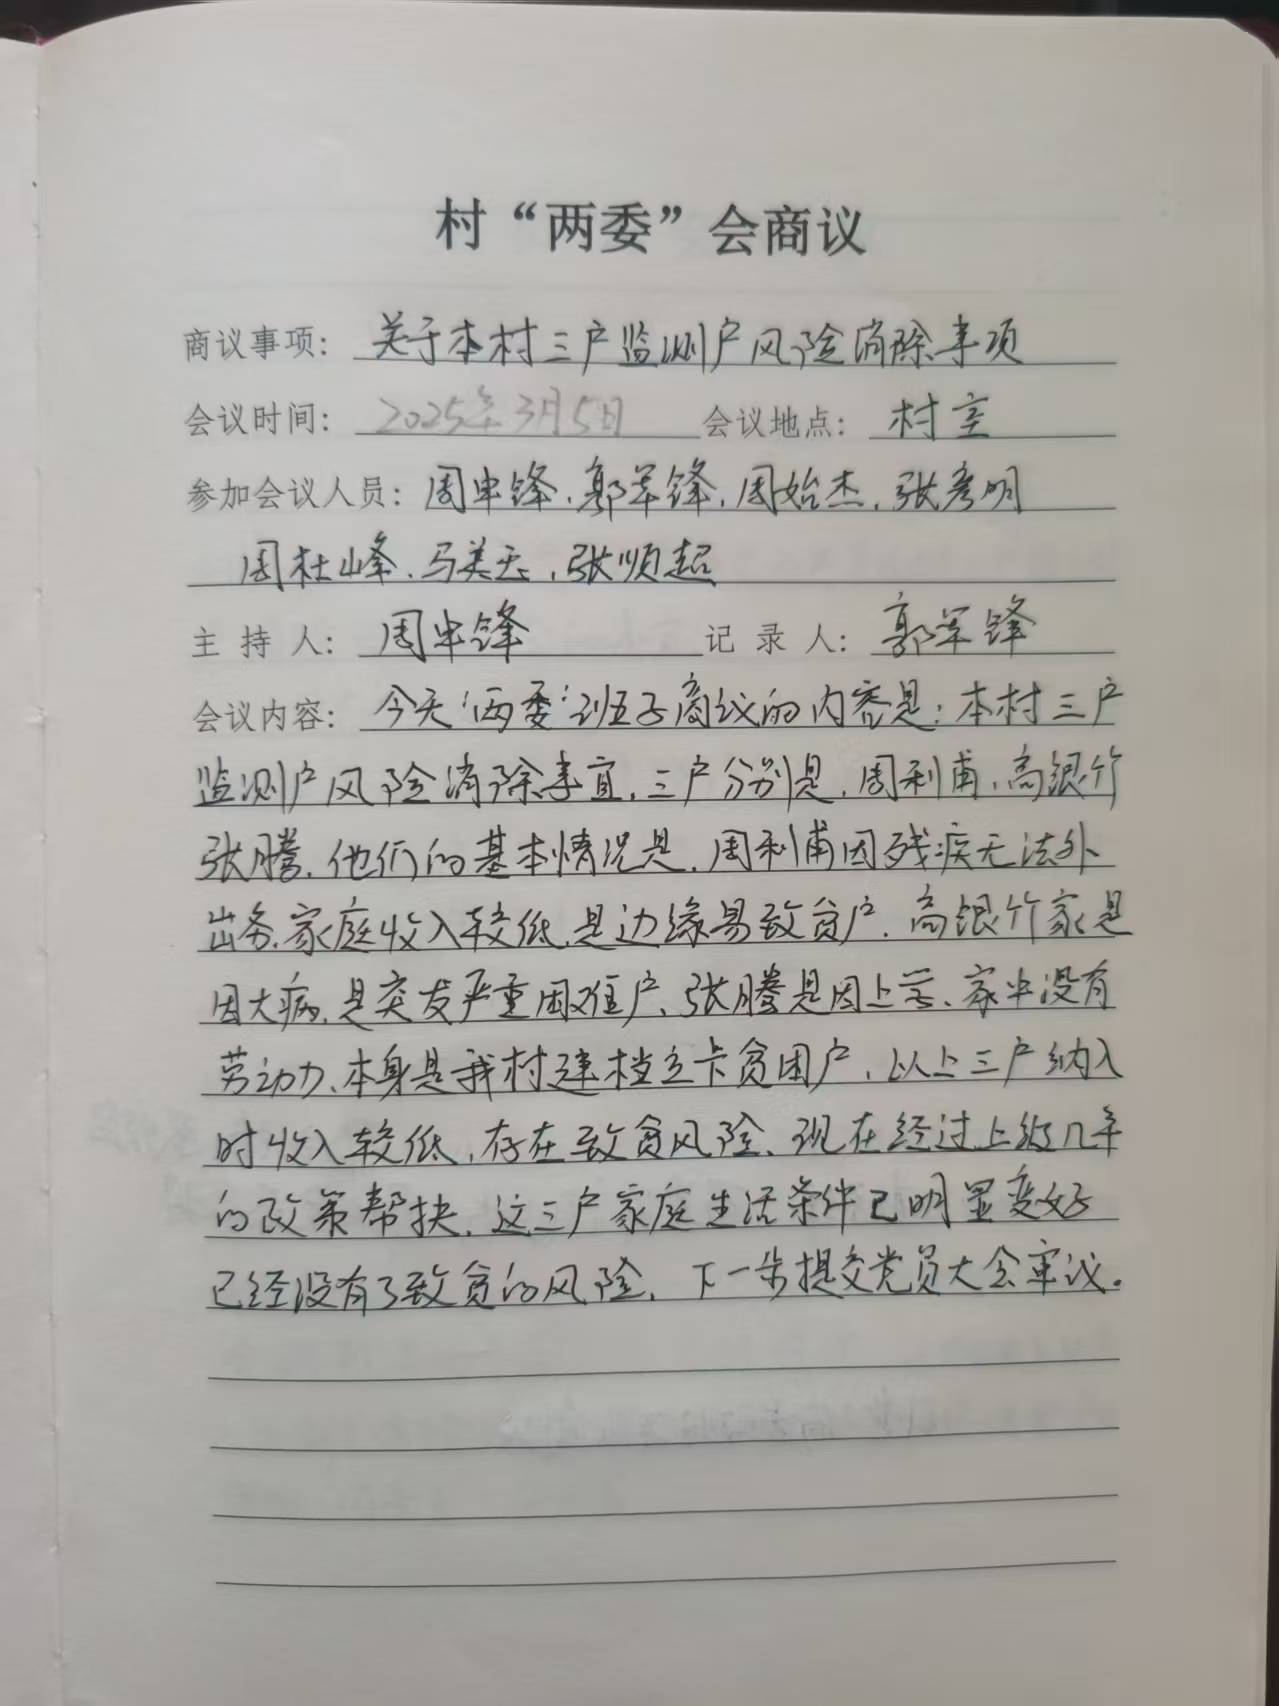 村“两委”会商议
商议事项：关于本村三户监测户风险消除事项
会议时间：2025年3月5日 会议地点：村室
参加会议人员：周忠锋、郭军锋、周始杰、张彦明
周杜峰、马美云、张顺超
主持人：周忠锋 记录人：郭军锋
会议内容：今天‘两委’班子商议的内容是：本村三户
监测户风险消除事宜，三户分别是，周利甫、高银竹
张腾，他们的基本情况是，周利甫因残疾无法外
出务，家庭收入较低，是边缘易致贫户，高银竹家是
因大病，是突发严重困难户，张腾是因上学、家中没有
劳动力、本身是我村建档立卡贫困户，以上三户纳入
时收入较低，存在致贫风险、现在经过上级几年
的政策帮扶，这三户家庭生活条件已明显变好
已经没有了致贫的风险，下一步提交党员大会审议。